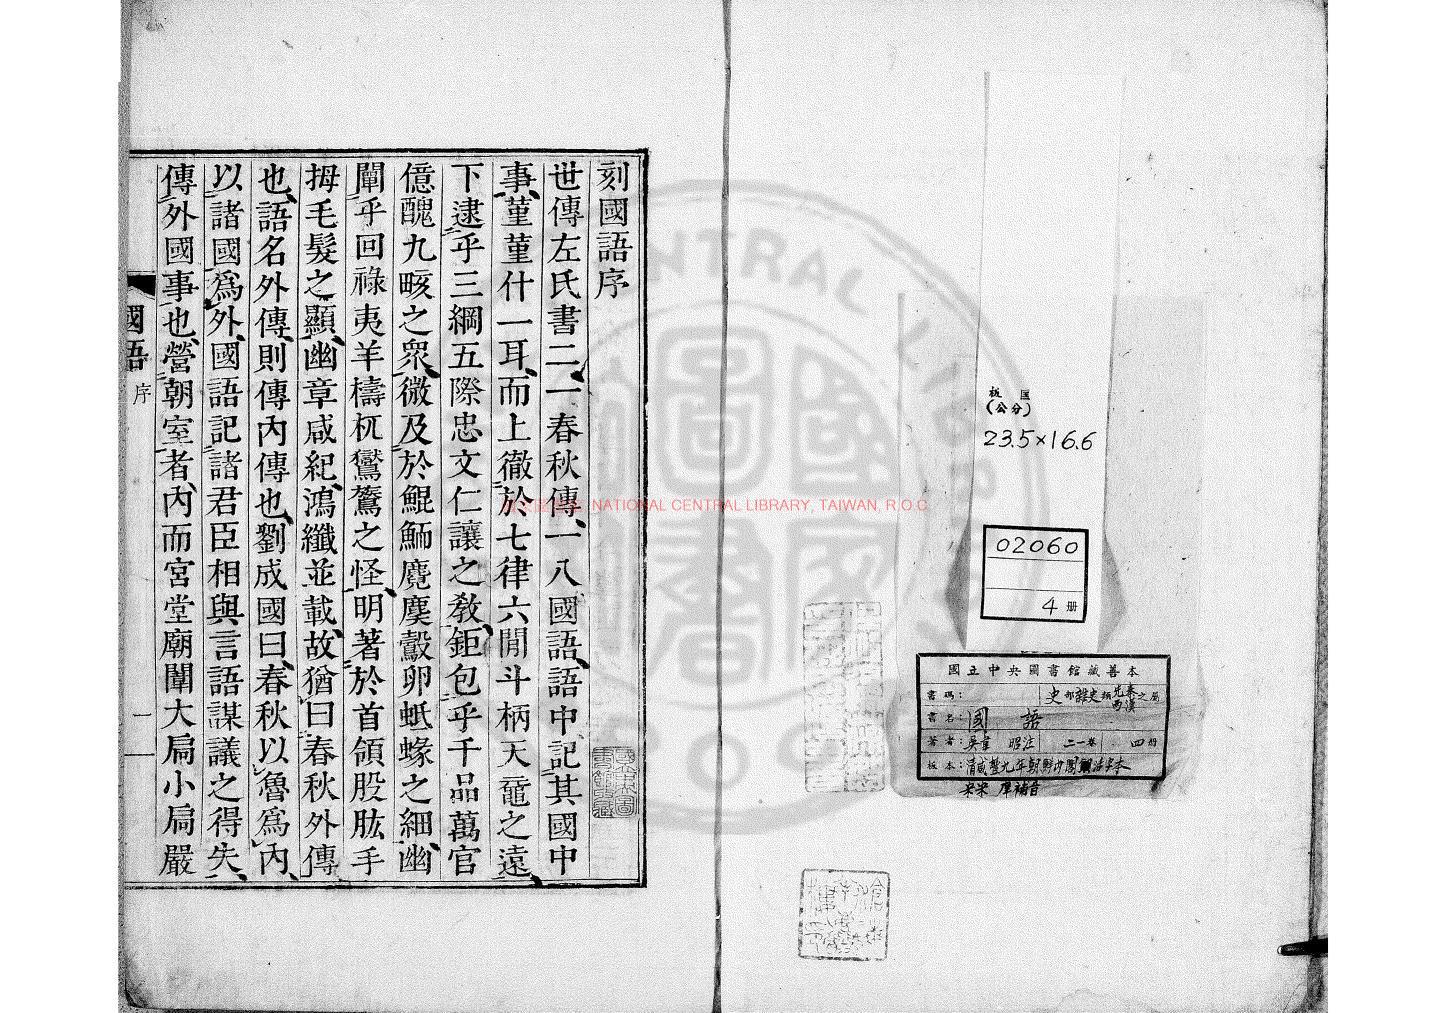 板匡
(公分)
23.5×16.6
02060
4 册
國立中央圖書館藏善本
書碼： 史部雜史類先秦之屬
西漢
書名：國語
著者：吳韋昭注 二一卷 四册
板本：清咸豐九年朝鮮內閣
宋宋庠補音
NATIONAL CENTRAL LIBRARY, TAIWAN, R.O.C
刻國語序
世傳左氏書二一春秋傳一八國語語中記其國中
事菫菫什一耳而上徹於七律六閒斗柄天黿之遠
下逮乎三綱五際忠文仁讓之敎鉅包乎千品萬官
億醜九畡之衆微及於鯤鮞麑麌鷇卵蚳蝝之細幽
闡乎回祿夷羊檮杌鸑鷟之怪明著於首領股肱手
拇毛髮之顯幽章咸紀鴻纖並載故猶曰春秋外傳
也語名外傳則傳內傳也劉成國曰春秋以魯爲內
以諸國爲外國語記諸君臣相與言語謀議之得失
傳外國事也營朝室者內而宮堂廟闈大扃小扃嚴
國語 序 一